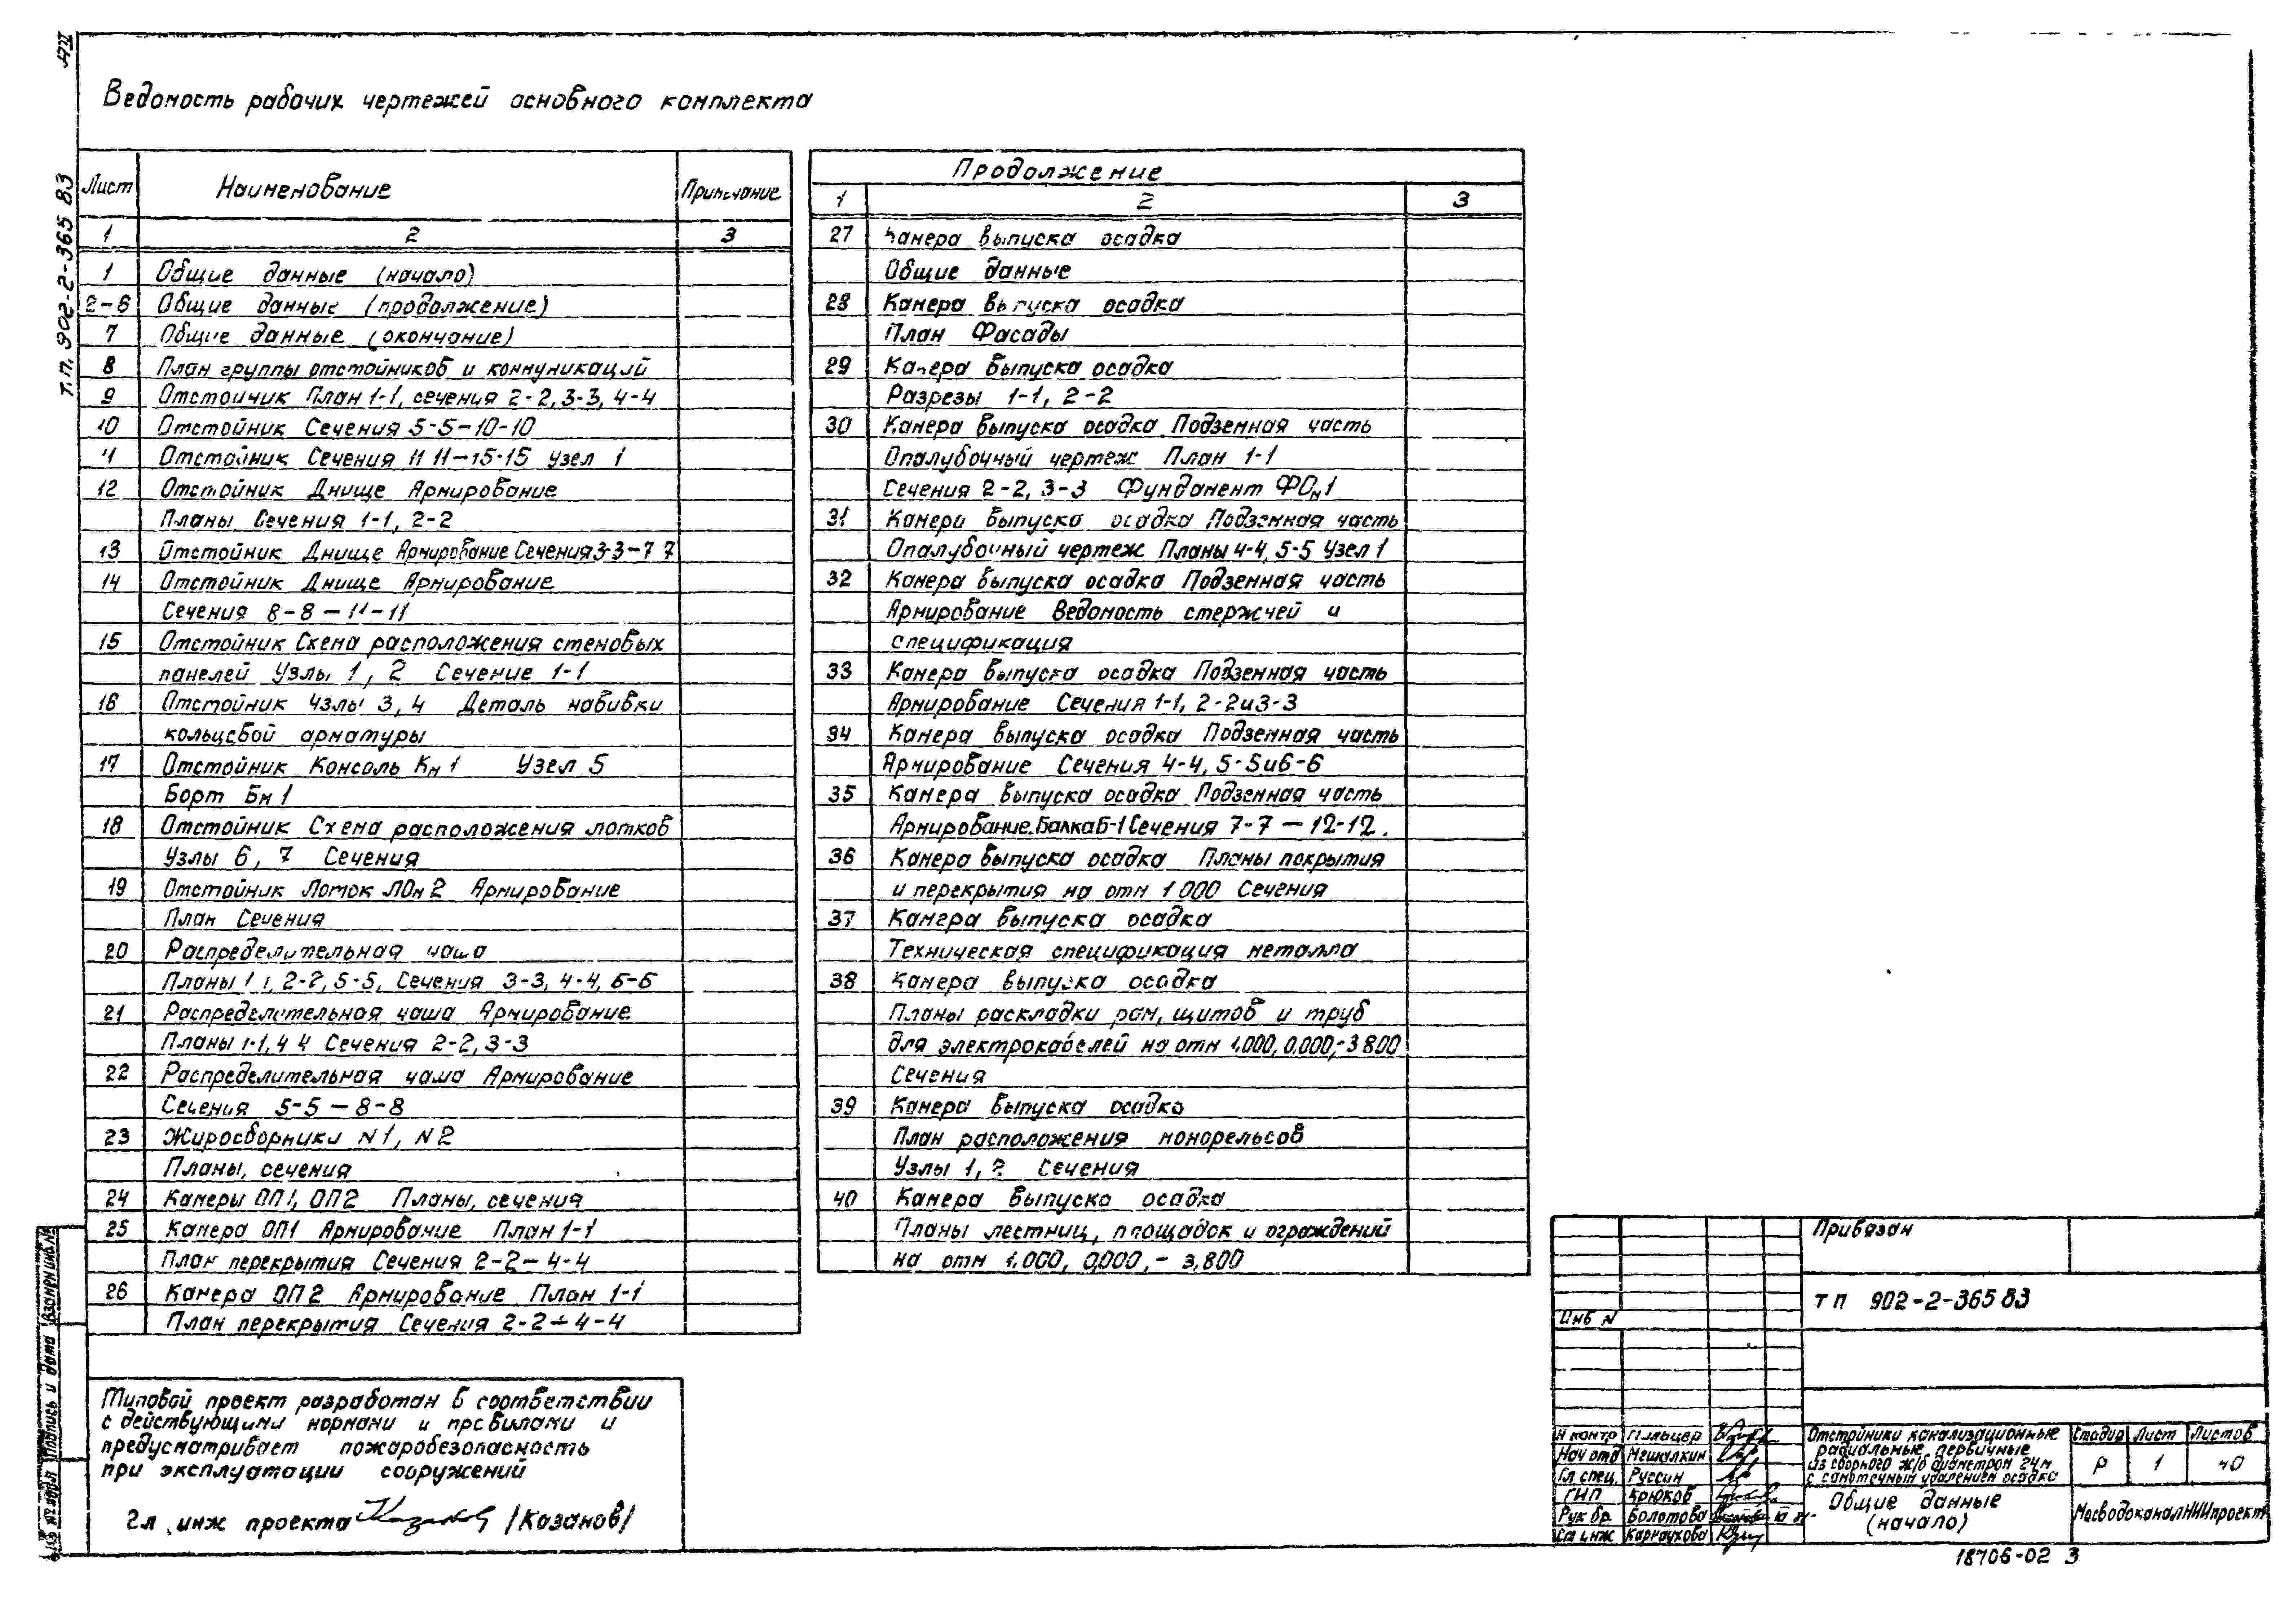 АЛ II
Т.П. 902-2-365 83
Ведомость рабочих чертежей основного комплекта
Лист Наименование Примечание
1 2 3
1 Общие данные (начало)
2-6 Общие данные (продолжение)
7 Общие данные (окончание)
8 План группы отстойников и коммуникаций
9 Отстойник План 1-1, сечения 2-2, 3-3, 4-4
10 Отстойник Сечения 5-5-10-10
11 Отстойник Сечения 11 11-15-15 Узел 1
12 Отстойник Днище Армирование
Планы Сечения 1-1, 2-2
13 Отстойник Днище Армирование Сечения 3-3-7 7
14 Отстойник Днище Армирование
Сечения 8-8-11-11
15 Отстойник Схема расположения стеновых
панелей Узлы 1, 2 Сечение 1-1
16 Отстойник Узлы 3, 4 Деталь навивки
кольцевой арматуры
17 Отстойник Консоль Км 1 Узел 5
Борт Бм 1
18 Отстойник Схема расположения лотков
Узлы 6, 7 Сечения
19 Отстойник Лоток ЛОм 2 Армирование
План Сечения
20 Распределительная чаша
Планы 1 1, 2-2, 5-5, Сечения 3-3, 4-4, 6-6
21 Распределительная чаша Армирование
Планы 1-1, 4 4 Сечения 2-2, 3-3
22 Распределительная чаша Армирование
Сечения 5-5-8-8
23 Жиросборники N1, N2
Планы, сечения
24 Камеры ОП1, ОП2 Планы, сечения
25 Камера ОП1 Армирование План 1-1
План перекрытия Сечения 2-2-4-4
26 Камера ОП2 Армирование План 1-1
План перекрытия Сечения 2-2-4-4
Продолжение
1 2 3
27 Камера выпуска осадка
Общие данные
28 Камера выпуска осадка
План Фасады
29 Камера выпуска осадка
Разрезы 1-1, 2-2
30 Камера выпуска осадка Подземная часть
Опалубочный чертеж План 1-1
Сечения 2-2, 3-3 Фундамент ФОм1
31 Камера выпуска осадка Подземная часть
Опалубочный чертеж Планы 4-4, 5-5 Узел 1
32 Камера выпуска осадка Подземная часть
Армирование Ведомость стержней и
спецификация
33 Камера выпуска осадка Подземная часть
Армирование Сечения 1-1, 2-2 и 3-3
34 Камера выпуска осадка Подземная часть
Армирование Сечения 4-4, 5-5 и 6-6
35 Камера выпуска осадка Подземная часть
Армирование. Балка Б-1 Сечения 7-7-12-12.
36 Камера выпуска осадка Планы покрытия
и перекрытия на отм 1 000 Сечения
37 Камера выпуска осадка
Техническая спецификация металла
38 Камера выпуска осадка
Планы раскладки рам, щитов и труб
для электрокабелей на отм 1.000, 0.000, -3 800
Сечения
39 Камера выпуска осадка
План расположения монорельсов
Узлы 1, 2 Сечения
40 Камера выпуска осадка
Планы лестниц, площадок и ограждений
на отм 1.000, 0,000, -3,800
Типовой проект разработан в соответствии
с действующими нормами и правилами и
предусматривает пожаробезопасность
при эксплуатации сооружений
Гл. инж проекта /Казанов/
Инв № подл Подпись и дата Взамен инв №
Привязан
ТП 902-2-365 83
Инв N
Н контр Гильцер
Нач отд Мешалкин
Гл спец. Руссин
ГИП Крюков
Рук бр. Болотова
Ст инж Карнаухова
Отстойники канализационные
радиальные первичные
из сборного ж/б диаметром 24м
с самотечным удалением осадка
Стадия Лист Листов
Р 1 40
Общие данные
(начало)
МосводоканалНИИпроект
18706-02 3